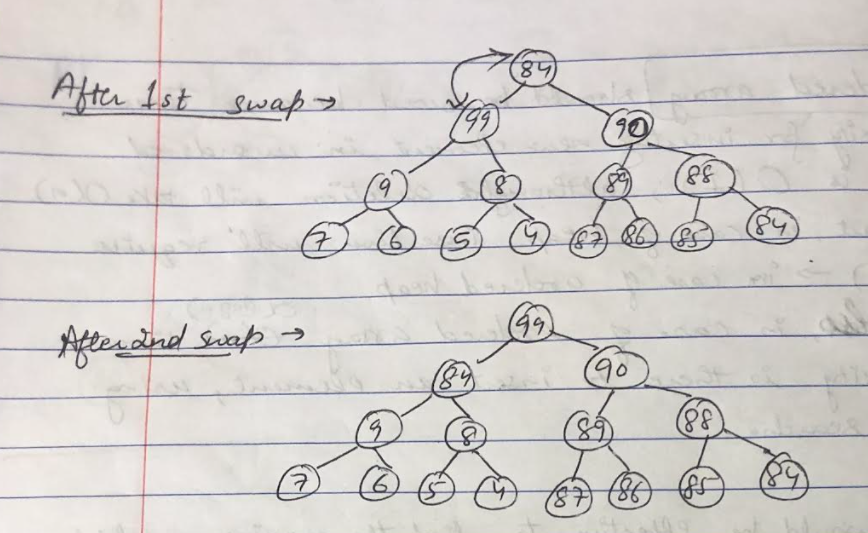 84
After 1st swap →
99 90
9 8 89 88
7 6 5 4 87 86 85 84
99
After 2nd swap →
84 90
9 8 89 88
7 6 5 4 87 86 85 84